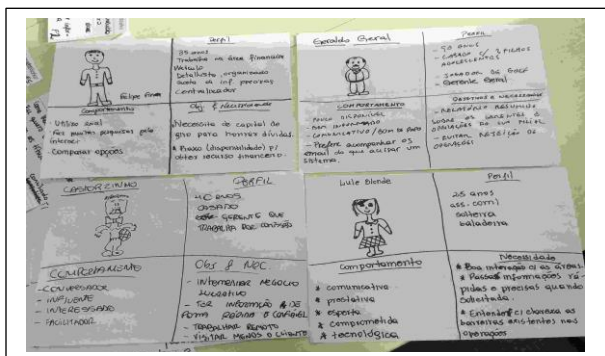 Felipe Finan
Perfil
35 anos
Trabalha na área financeira
Metódico
Detalhista, organizado
gosta de inf. precisas
Controlador
Comportamento
- Visão geral
- Faz muitas pesquisas pela
internet
- Comparar opções
Obj & Necessidade
Necessita de capital de
giro para honrar dívidas.
* Prazo (disponibilidade) p/
obter recurso financeiro.
Geraldo Geral
Perfil
- 50 anos
- Casado c/ 3 filhos
adolescentes
- Jogador de golf
- Gerente Geral
Comportamento
- Pouco disponível
- Bem informado
- Comunicativo / bom de papo
- Prefere acompanhar os
email do que acessar um
sistema.
Objetivos e necessidade
- Relatório resumido
sobre os
operações da sua
- Evitar
operações
Perfil
40 anos
casado
gerente que
trabalha por comissão
Comportamento
- Conversador
- Influente
- Interessado
- Facilitador
Obj & Nec.
- Intermediar negócio
lucrativo
- Ter informação de
forma rápida e confiável
- Trabalhar remoto
visitar menos o cliente
Lulle Blonde
Perfil
25 anos
ass. com'l
solteira
baladeira
Comportamento
* comunicativa
* prestativa
* esperta
* comprometida
* tecnológica
Necessidade
* Boa interação c/ as áreas.
* Passar informações rá-
pidas e precisas quando
solicitada.
* Entender c/ clareza as
barreiras existentes nas
operações